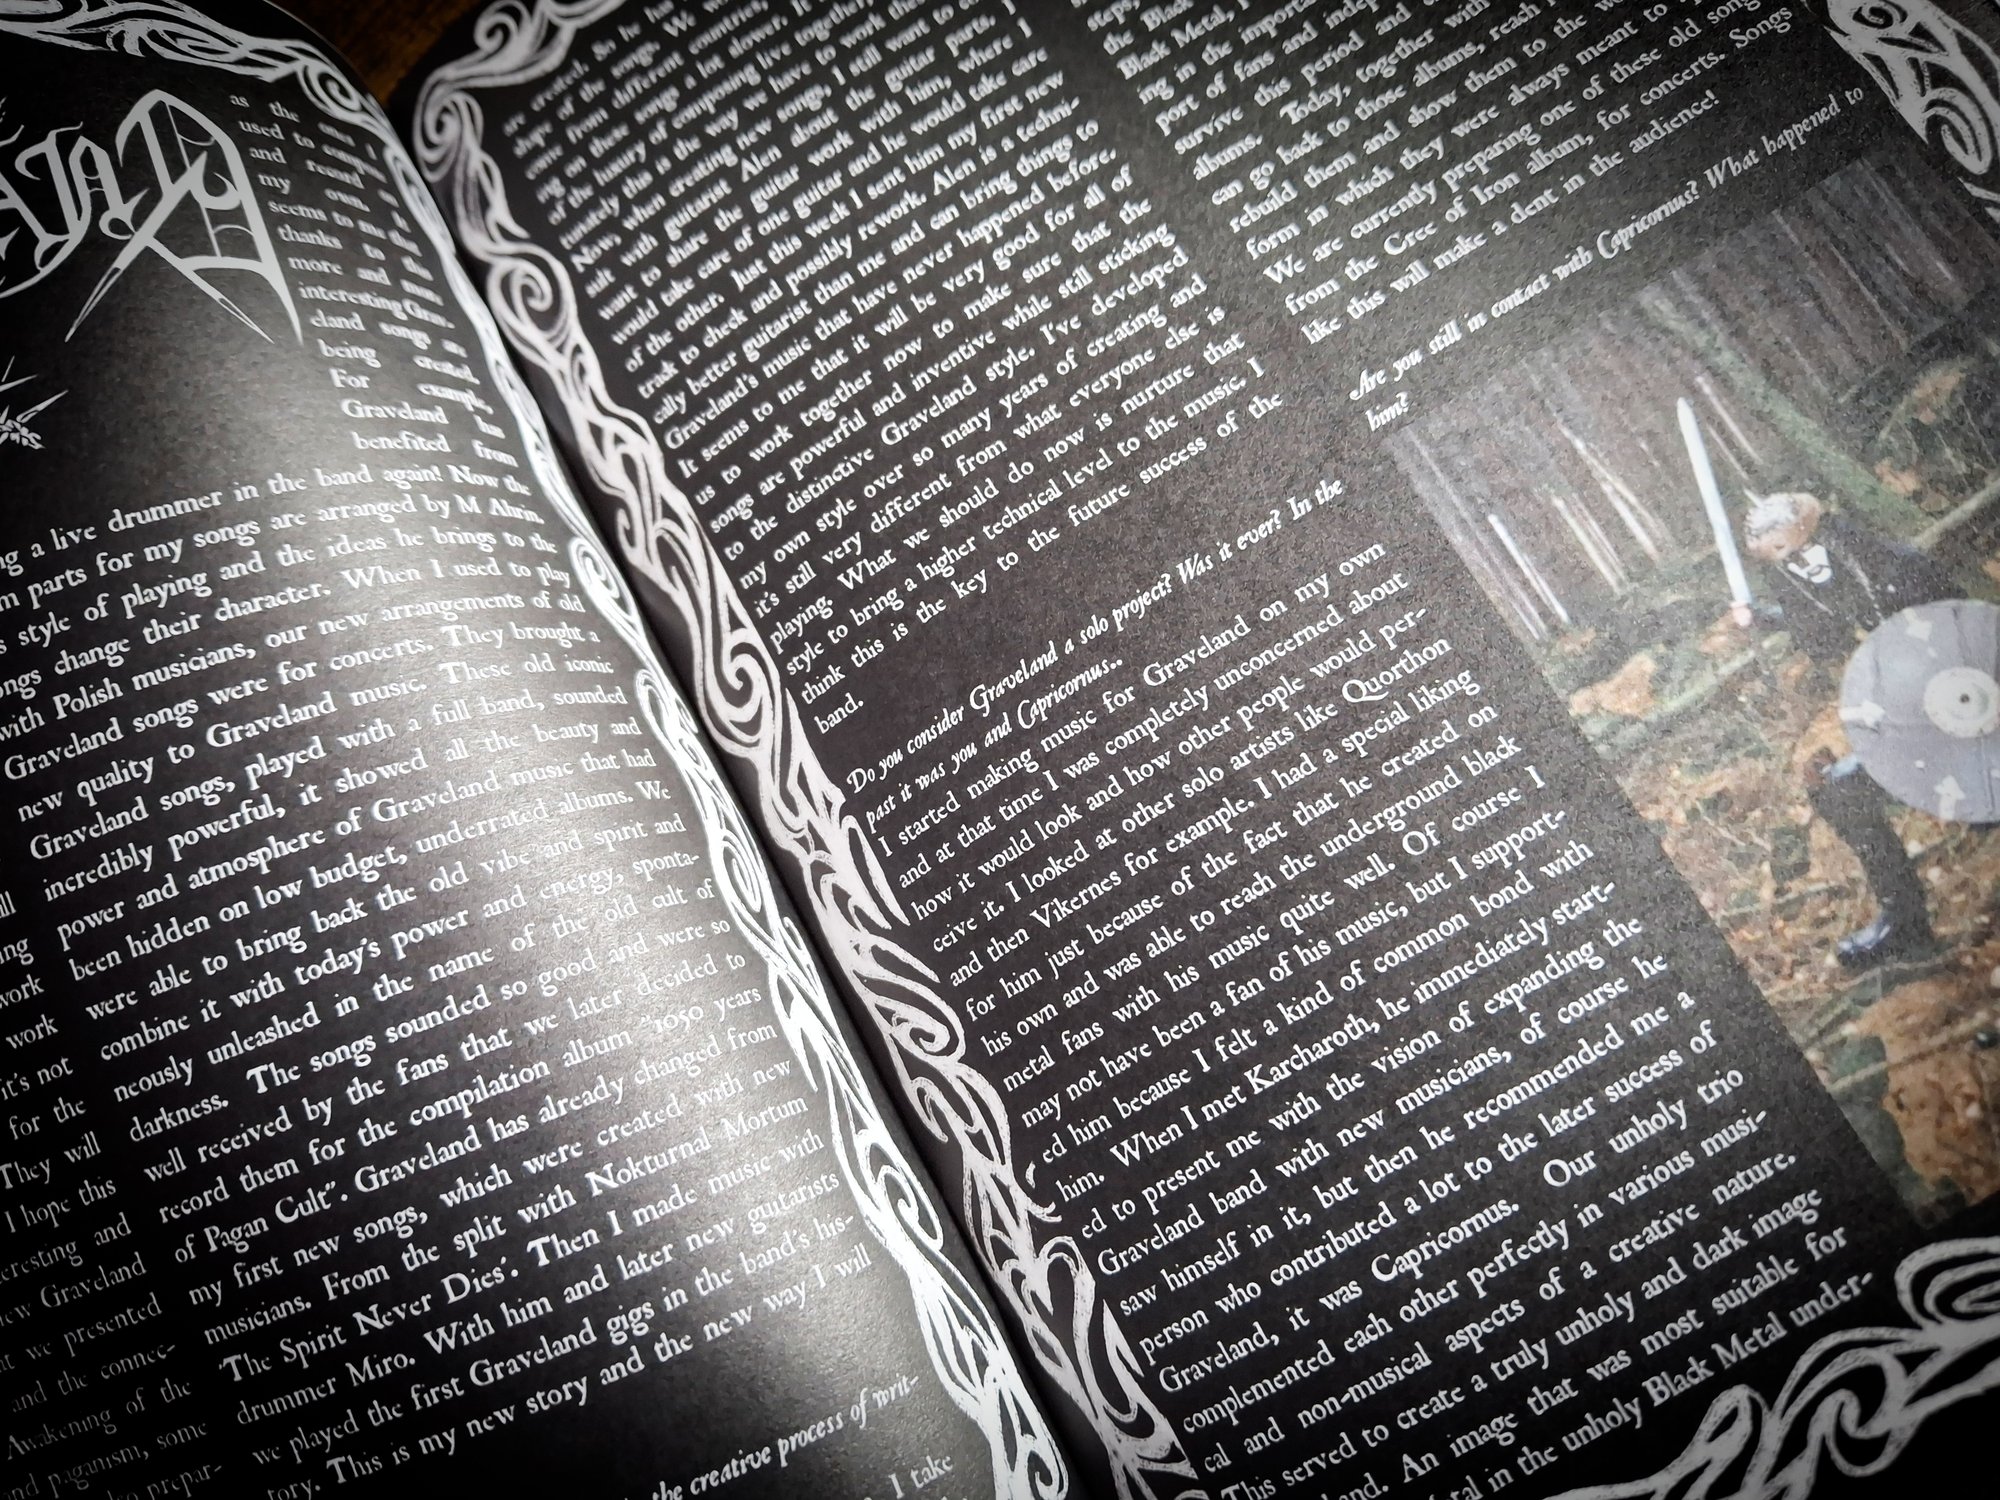 as the one I
used to compose
and record on
my own. It
seems to me that
thanks to this,
more and more
interesting Grav-
eland songs are
being created.
For example,
Graveland has
benefited from
ng a live drummer in the band again! Now the
m parts for my songs are arranged by M Ahrin.
s style of playing and the ideas he brings to the
ongs change their character. When I used to play
with Polish musicians, our new arrangements of old
Graveland songs were for concerts. They brought a
new quality to Graveland music. These old iconic
Graveland songs, played with a full band, sounded
incredibly powerful, it showed all the beauty and
power and atmosphere of Graveland music that had
been hidden on low budget, underrated albums. We
were able to bring back the old vibe and spirit and
combine it with today's power and energy, sponta-
neously unleashed in the name of the old cult of
darkness. The songs sounded so good and were so
well received by the fans that we later decided to
record them for the compilation album "1050 years
of Pagan Cult". Graveland has already changed from
my first new songs, which were created with new
musicians. From the split with Nokturnal Mortum
'The Spirit Never Dies'. Then I made music with
drummer Miro. With him and later new guitarists
we played the first Graveland gigs in the band's his-
tory. This is my new story and the new way I will
the creative process of writ-
I take
ing
work
work
it's not
for the
They will
I hope this
eresting and
ew Graveland
we presented
and the connec-
Awakening of the
and paganism, some
prepar-
are created! So he has
shape of the songs. We
come from different countries,
ing on these songs a lot slower. It
of the luxury of composing live together,
tunately this is the way we have to work these
Now, when creating new songs, I still want to
sult with guitarist Alen about the guitar parts. I
want to share the guitar work with him, where I
would take care of one guitar and he would take care
of the other. Just this week I sent him my first new
track to check and possibly rework. Alen is a techni-
cally better guitarist than me and can bring things to
Graveland's music that have never happened before.
It seems to me that it will be very good for all of
us to work together now to make sure that the
songs are powerful and inventive while still sticking
to the distinctive Graveland style. I've developed
my own style over so many years of creating and
it's still very different from what everyone else is
playing. What we should do now is nurture that
style to bring a higher technical level to the music. I
think this is the key to the future success of the
band.
Do you consider Graveland a solo project? Was it ever? In the
past it was you and Capricornus..
I started making music for Graveland on my own
and at that time I was completely unconcerned about
how it would look and how other people would per-
ceive it. I looked at other solo artists like Quorthon
and then Vikernes for example. I had a special liking
for him just because of the fact that he created on
his own and was able to reach the underground black
metal fans with his music quite well. Of course I
may not have been a fan of his music, but I support-
ed him because I felt a kind of common bond with
him. When I met Karcharoth, he immediately start-
ed to present me with the vision of expanding the
Graveland band with new musicians, of course he
saw himself in it, but then he recommended me a
person who contributed a lot to the later success of
Graveland, it was Capricornus. Our unholy trio
complemented each other perfectly in various musi-
cal and non-musical aspects of a creative nature.
This served to create a truly unholy and dark image
band. An image that was most suitable for
in the unholy Black Metal under-
steps,
the Black
Black Metal, I
ing in the important
port of fans and indep
survive this period and
albums. Today, together with
can go back to those albums, reach
rebuild them and show them to the
form in which they were always meant to
We are currently preparing one of these old songs
from the Cree of Iron album, for concerts. Songs
like this will make a dent in the audience!
Are you still in contact with Capricornus? What happened to
him?